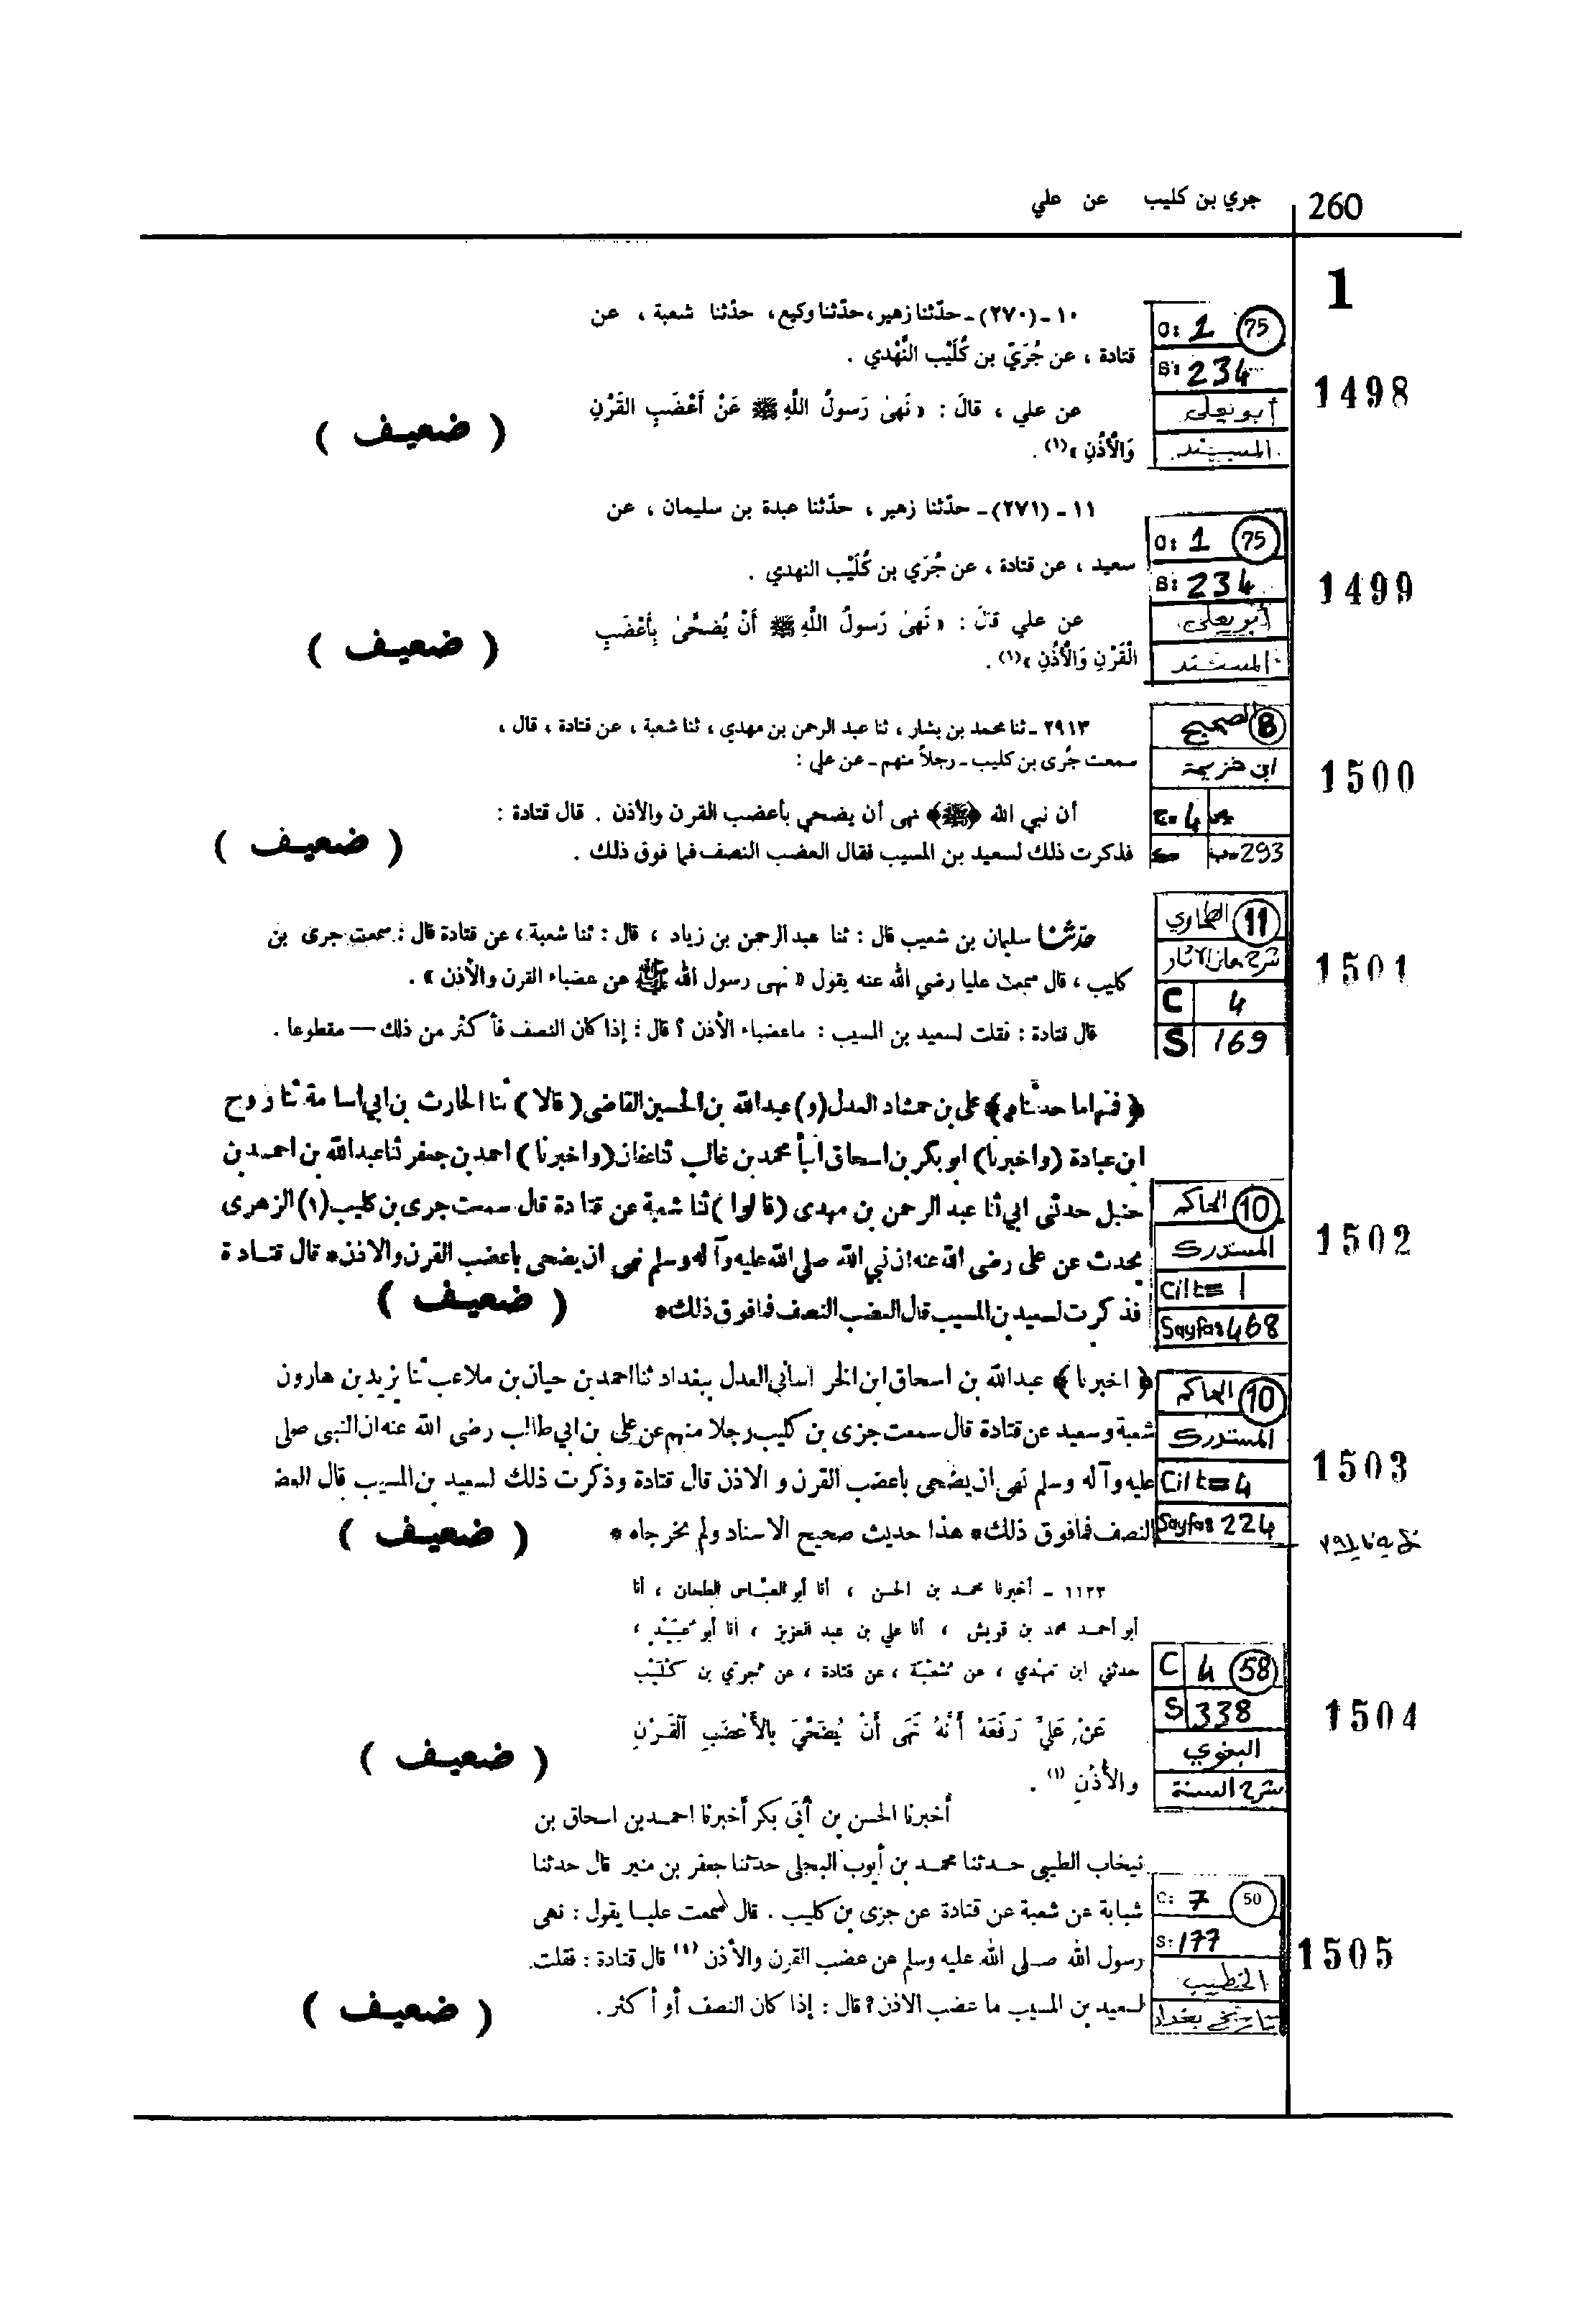 260 جري بن كليب عن علي
1
1498
C: 1 75
S: 234
أبو يعلى
المسند
١٠ - (٢٧٠) - حدّثنا زهير، حدّثنا وكيع، حدّثنا شعبة ، عن
قتادة ، عن جُرَيّ بن كُلَيْب النَّهْدي .
عن علي ، قالَ : « نَهىٰ رَسولُ اللَّهِ ﷺ عَنْ أَعْضَبِ القَرْنِ
وَالْأُذُنِ »(١) .
( ضعيف )
1499
C: 1 75
S: 234
أبو يعلى
المسند
١١ - (٢٧١) - حدّثنا زهير ، حدّثنا عبدة بن سليمان ، عن
سعيد ، عن قتادة ، عن جُرَي بن كُلَيْب النهدي .
عن علي قالَ : « نَهىٰ رَسولُ اللَّهِ ﷺ أَنْ يُضحَّىٰ بِأَعْضَبِ
الْقَرْنِ وَالْأُذُنِ »(١) .
( ضعيف )
1500
الصحيح 8
ابن خزيمة
4
293
٢٩١٣ - ثنا محمد بن بشار ، ثنا عبد الرحمن بن مهدي ، ثنا شعبة ، عن قتادة ، قال ،
سمعت جُرى بن كليب - رجلاً منهم - عن علي :
أن نبي الله ﴿ﷺ﴾ نهى أن يضحي بأعضب القرن والأذن . قال قتادة :
فذكرت ذلك لسعيد بن المسيب فقال العضب النصف فما فوق ذلك .
( ضعيف )
1501
الطحاوي 11
شرح معاني الآثار
C 4
S 169
حدّثنا سليمان بن شعيب قال : ثنا عبد الرحمن بن زياد ، قال : ثنا شعبة ، عن قتادة قال : سمعت جرى بن
كليب ، قال سمعت عليا رضي الله عنه يقول « نهى رسول الله ﷺ عن عضباء القرن والأذن » .
قال قتادة : فقلت لسعيد بن المسيب : ماعضباء الأذن ؟ قال : إذا كان النصف فأكثر من ذلك — مقطوعا .
1502
الحاكم 10
المستدرك
Cilt= 1
Sayfa: 468
﴿ فمنها ما حدثناه ﴾ على بن حمشاد العدل (و) عبدالله بن الحسين القاضى ( قالا ) ثنا الحارث بن ابي اسامة ثنا روح
ابن عبادة (واخبرنا) ابو بكر بن اسحاق انبأ محمد بن غالب ثنا عفان (واخبرنا ) احمد بن جعفر ثنا عبدالله بن احمد بن
حنبل حدثنى ابي ثنا عبد الرحمن بن مهدى (قالوا ) ثنا شعبة عن قتادة قال سمعت جرى بن كليب (١) الزهرى
يحدث عن على رضى الله عنه ان نبي الله صلى الله عليه وآله وسلم نهى ان يضحى باعضب القرن والاذن * قال قتادة
فذكرت لسعيد بن المسيب قال العضب النصف فما فوق ذلك *
( ضعيف )
1503
الحاكم 10
المستدرك
Cilt= 4
Sayfa: 224
﴿ اخبرنا ﴾ عبدالله بن اسحاق ابن الخراساني العدل ببغداد ثنا احمد بن حيان بن ملاعب ثنا يزيد بن هارون
شعبة وسعيد عن قتادة قال سمعت جزى بن كليب رجلا منهم عن على بن ابي طالب رضى الله عنه ان النبى صلى
عليه وآله وسلم نهى ان يضحى باعضب القرن و الاذن قال قتادة وذكرت ذلك لسعيد بن المسيب قال العض
النصف فما فوق ذلك * هذا حديث صحيح الاسناد ولم يخرجاه *
( ضعيف )
1504
C 4 58
S 338
البغوي
شرح السنة
١١٢٣ - أخبرنا محمد بن الحسن ، أنا أبو العباس الطحان ، أنا
أبو أحمد محمد بن قريش ، أنا علي بن عبد العزيز ، أنا أبو عبيد ،
حدثني ابن مهدي ، عن شعبة ، عن قتادة ، عن جري بن كليب
عَنْ عَليٍّ رَفَعَهُ أَنَّهُ نَهَى أَنْ يُضَحَّيَ بالأَعْضَبِ القَرْنِ
والأُذُنِ (١) .
( ضعيف )
1505
C: 7 50
S: 177
الخطيب
تاريخ بغداد
أخبرنا الحسن بن أبى بكر أخبرنا احمد بن اسحاق بن
نيخاب الطيبى حدثنا محمد بن أيوب البجلى حدثنا جعفر بن منير قال حدثنا
شبابة عن شعبة عن قتادة عن جزى بن كليب . قال سمعت عليا يقول : نهى
رسول الله صلى الله عليه وسلم عن عضب القرن والأذن (١) قال قتادة : فقلت
لسعيد بن المسيب ما عضب الاذن ؟ قال : إذا كان النصف أو أكثر .
( ضعيف )